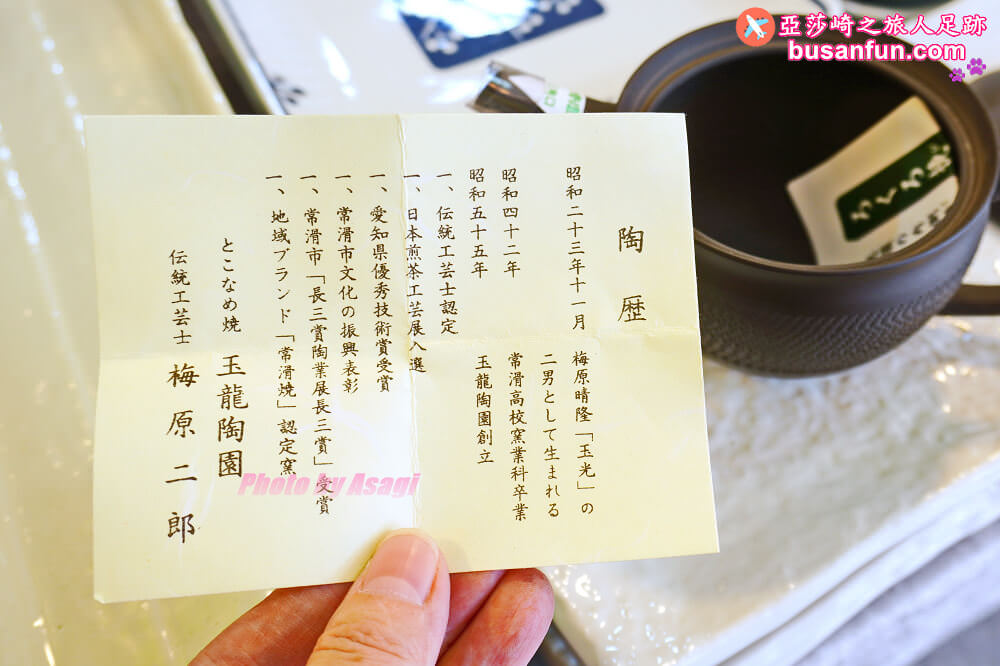 陶歴
昭和二十三年十一月 梅原晴隆「玉光」の
二男として生まれる
昭和四十二年 常滑高校窯業科卒業
昭和五十五年 玉龍陶園創立
一、伝統工芸士認定
一、日本煎茶工芸展入選
一、愛知県優秀技術賞受賞
一、常滑市文化の振興表彰
一、常滑市「長三賞陶業展長三賞」受賞
一、地域ブランド「常滑焼」認定窯
とこなめ焼 玉龍陶園
伝統工芸士 梅原二郎
亞莎崎之旅人足跡
busanfun.com
Photo by Asagi